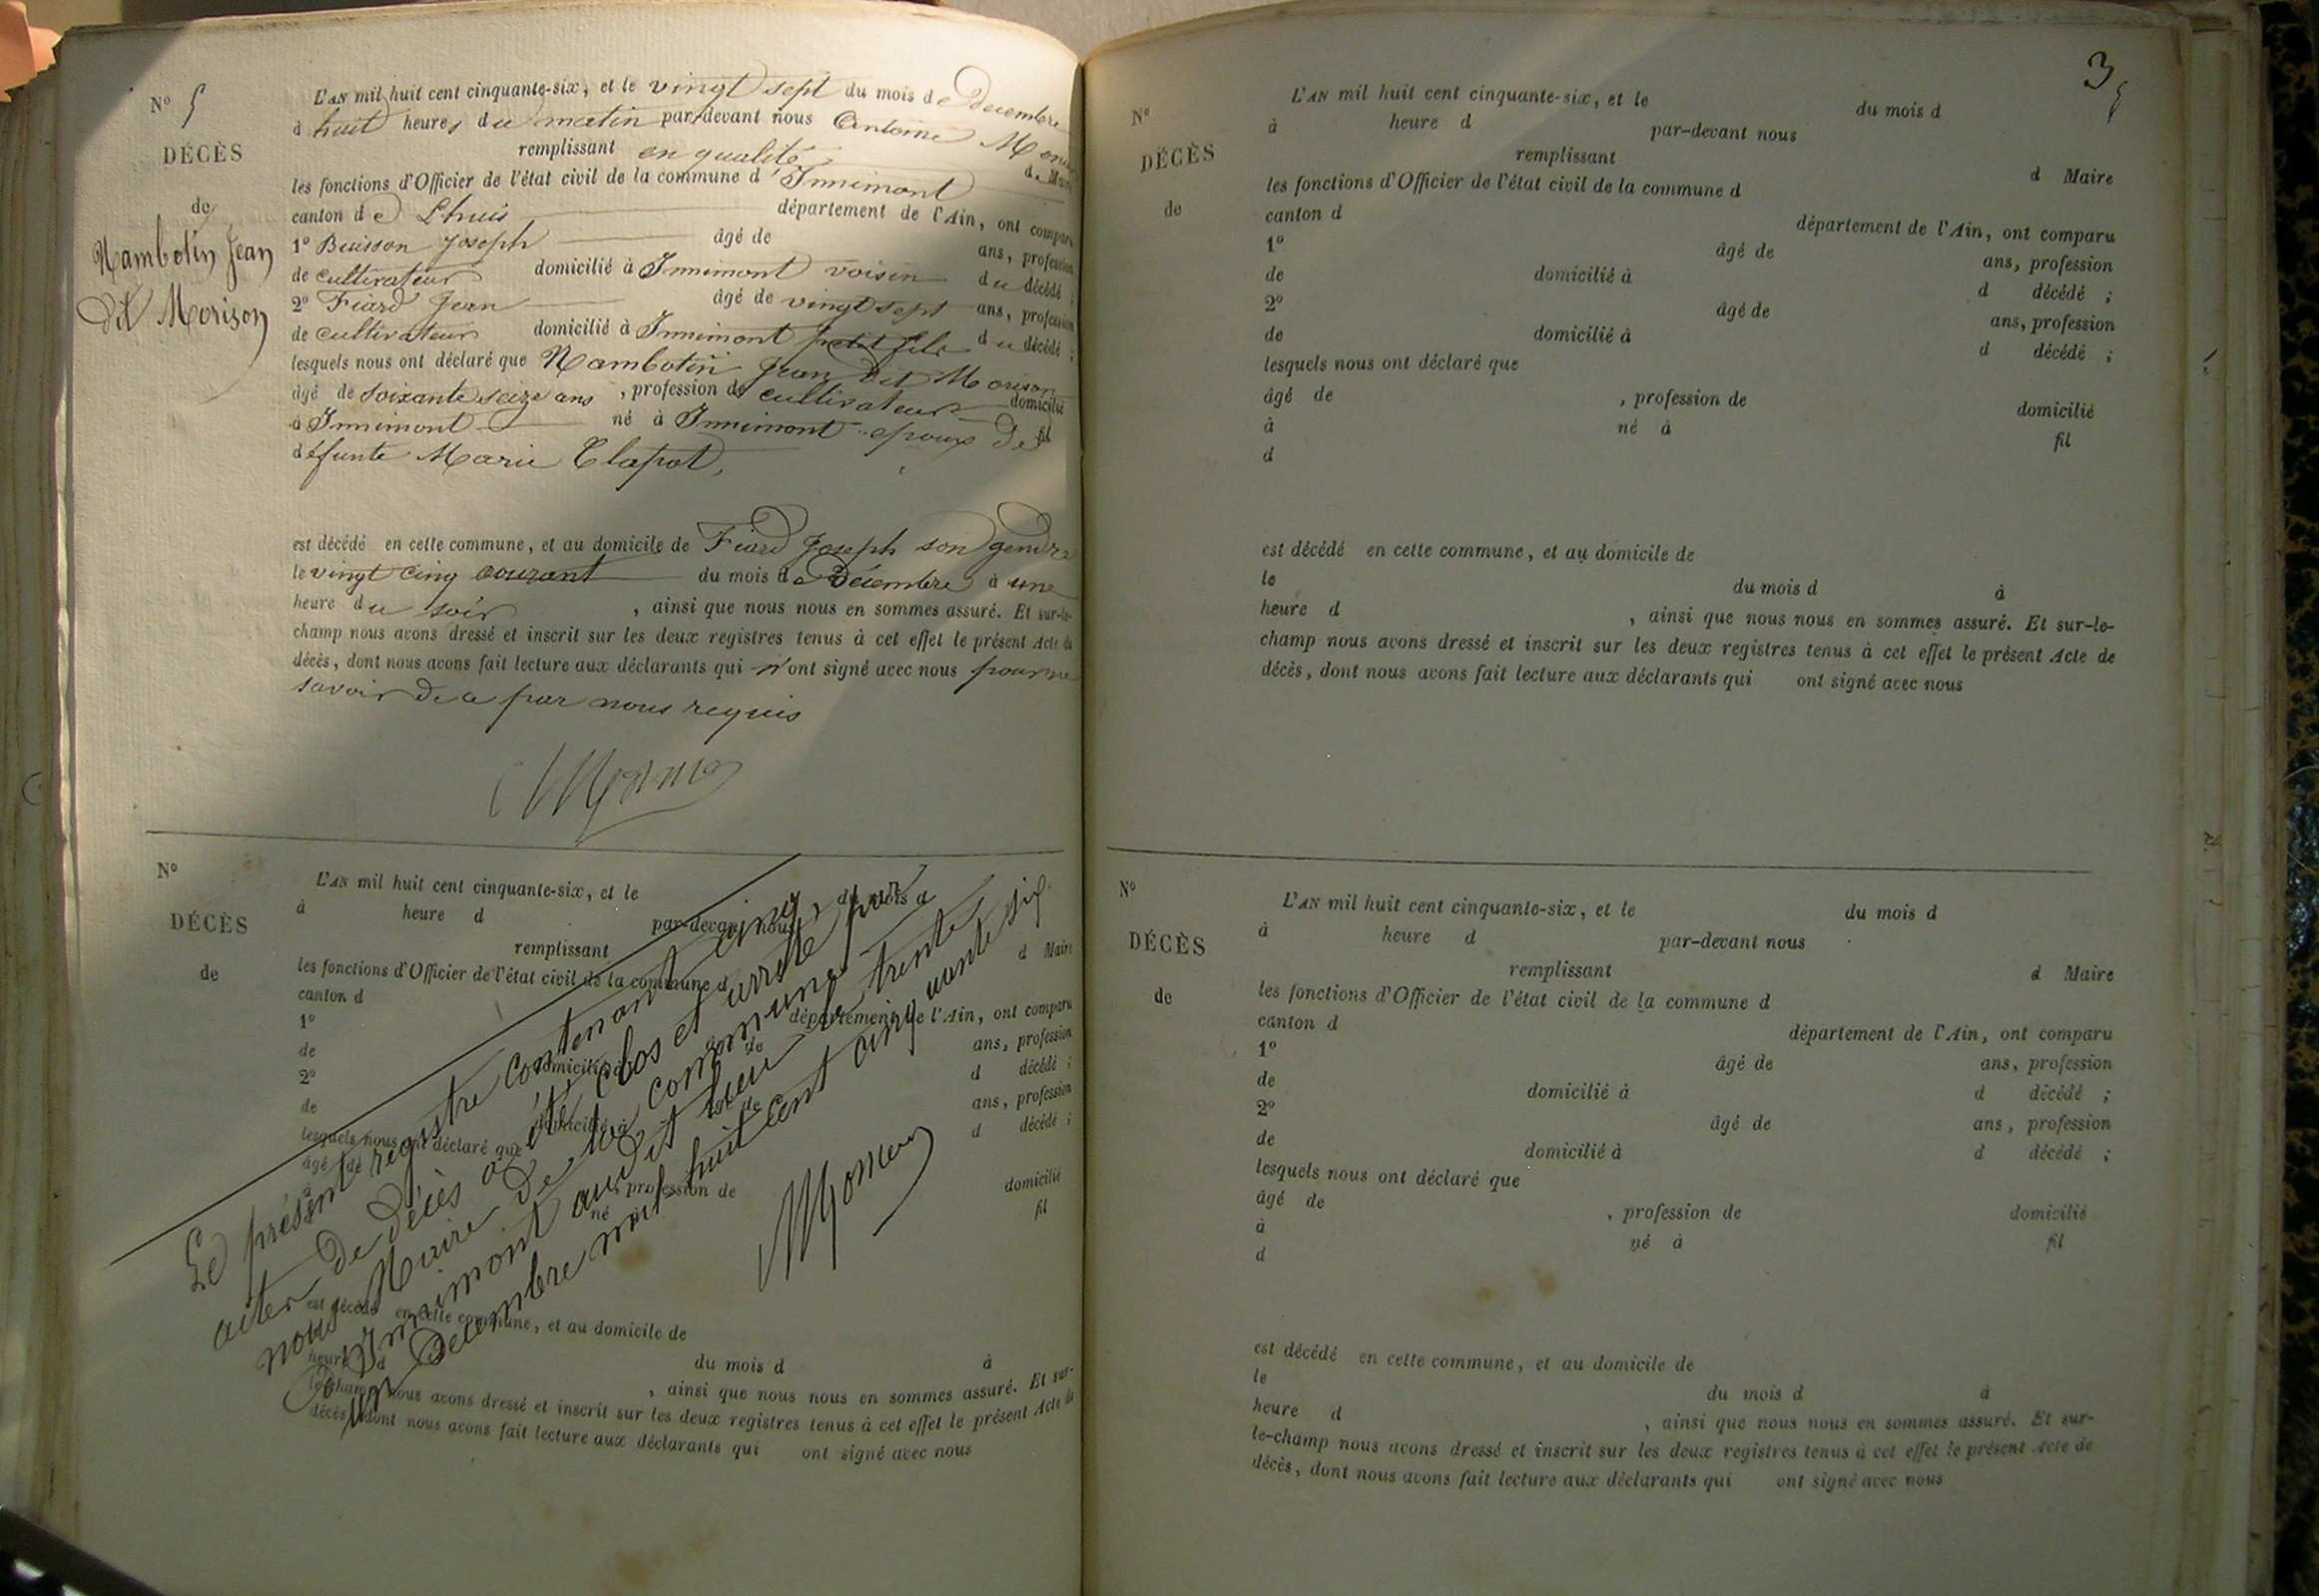 N° 5
DÉCÈS
de
Nambotin Jean
dit Morison
L'AN mil huit cent cinquante-six, et le vingt sept du mois de Decembre
à huit heures du matin par-devant nous Antoine
remplissant en qualité de Maire
les fonctions d'Officier de l'état civil de la commune d'Innimont
canton de Lhuis département de l'Ain, ont comparu
1° Buisson Joseph âgé de ans, profession
de cultivateur domicilié à Innimont voisin du décédé ;
2° Fiard Jean âgé de vingt sept ans, profession
de cultivateur domicilié à Innimont petit fils du décédé ;
lesquels nous ont déclaré que Nambotin Jean dit Morison
âgé de soixante seize ans , profession de cultivateur domicilié
à Innimont né à Innimont epoux de fil
défunte Marie Clapot,
est décédé en cette commune, et au domicile de Fiard Joseph son gendre
le vingt cinq courant du mois de Décembre à une
heure du soir , ainsi que nous nous en sommes assuré. Et sur-le-
champ nous avons dressé et inscrit sur les deux registres tenus à cet effet le présent Acte de
décès, dont nous avons fait lecture aux déclarants qui n'ont signé avec nous pour ne
savoir de ce par nous requis
N°
DÉCÈS
de
L'AN mil huit cent cinquante-six, et le du mois d
à heure d par-devant nous
remplissant d Maire
les fonctions d'Officier de l'état civil de la commune d
canton d département de l'Ain, ont comparu
1° âgé de ans, profession
de domicilié à d décédé ;
2° âgé de ans, profession
de domicilié à d décédé ;
lesquels nous ont déclaré que
âgé de , profession de domicilié
à né à fil
d
est décédé en cette commune, et au domicile de
le du mois d à
heure d , ainsi que nous nous en sommes assuré. Et sur-
le-champ nous avons dressé et inscrit sur les deux registres tenus à cet effet le présent Acte de
décès, dont nous avons fait lecture aux déclarants qui ont signé avec nous
Le présent registre contenant cinq
actes de décès a été clos et arrêté par
nous Maire de la commune
d'Innimont audit lieu le trente
un Decembre mil huit cent cinquante six
3
N°
DÉCÈS
de
L'AN mil huit cent cinquante-six, et le du mois d
à heure d par-devant nous
remplissant d Maire
les fonctions d'Officier de l'état civil de la commune d
canton d département de l'Ain, ont comparu
1° âgé de ans, profession
de domicilié à d décédé ;
2° âgé de ans, profession
de domicilié à d décédé ;
lesquels nous ont déclaré que
âgé de , profession de domicilié
à né à fil
d
est décédé en cette commune, et au domicile de
le du mois d à
heure d , ainsi que nous nous en sommes assuré. Et sur-le-
champ nous avons dressé et inscrit sur les deux registres tenus à cet effet le présent Acte de
décès, dont nous avons fait lecture aux déclarants qui ont signé avec nous
N°
DÉCÈS
de
L'AN mil huit cent cinquante-six, et le du mois d
à heure d par-devant nous
remplissant d Maire
les fonctions d'Officier de l'état civil de la commune d
canton d département de l'Ain, ont comparu
1° âgé de ans, profession
de domicilié à d décédé ;
2° âgé de ans, profession
de domicilié à d décédé ;
lesquels nous ont déclaré que
âgé de , profession de domicilié
à né à fil
d
est décédé en cette commune, et au domicile de
le du mois d à
heure d , ainsi que nous nous en sommes assuré. Et sur-
le-champ nous avons dressé et inscrit sur les deux registres tenus à cet effet le présent Acte de
décès, dont nous avons fait lecture aux déclarants qui ont signé avec nous